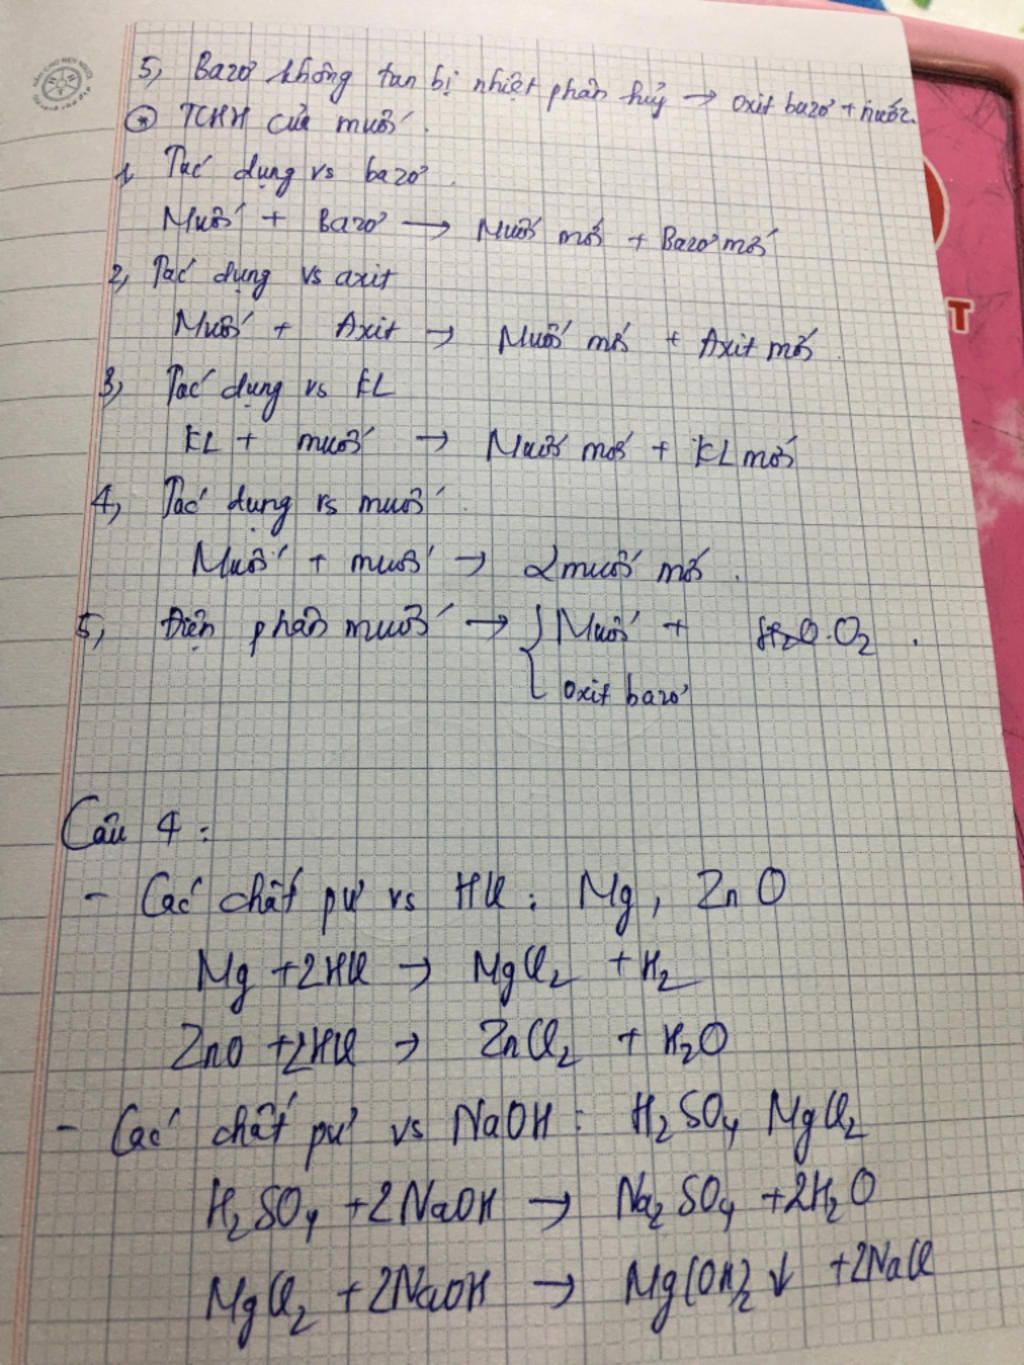 5, Bazơ không tan bị nhiệt phân hủy → oxit bazơ + nước.
* TCHH của muối.
1, Tác dụng vs bazơ.
Muối + Bazơ → Muối mới + Bazơ mới
2, Tác dụng vs axit
Muối + Axit → Muối mới + Axit mới.
3, Tác dụng vs KL
KL + muối → Muối mới + KL mới
4, Tác dụng vs muối.
Muối + muối → 2 muối mới.
5, Điện phân muối → { Muối + O2.
oxit bazơ
T
Câu 4:
- Các chất pư vs HCl: Mg, ZnO
Mg + 2HCl → MgCl2 + H2
ZnO + 2HCl → ZnCl2 + H2O
- Các chất pư vs NaOH: H2SO4 MgCl2
H2SO4 + 2NaOH → Na2SO4 + 2H2O
MgCl2 + 2NaOH → Mg(OH)2 ↓ + 2NaCl